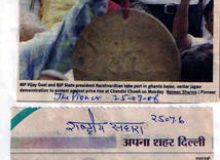 BJP Vijay Goel and BJP State president Harshvardhan take part in ghanta bajao, sarkar jagao
demonstration to protest against price rise at Chandni Chowk on Monday Naveen Sharma | Pioneer
The Pioneer 25-07-06
राष्ट्रीय सहारा 25.07.6
अपना शहर दिल्ली